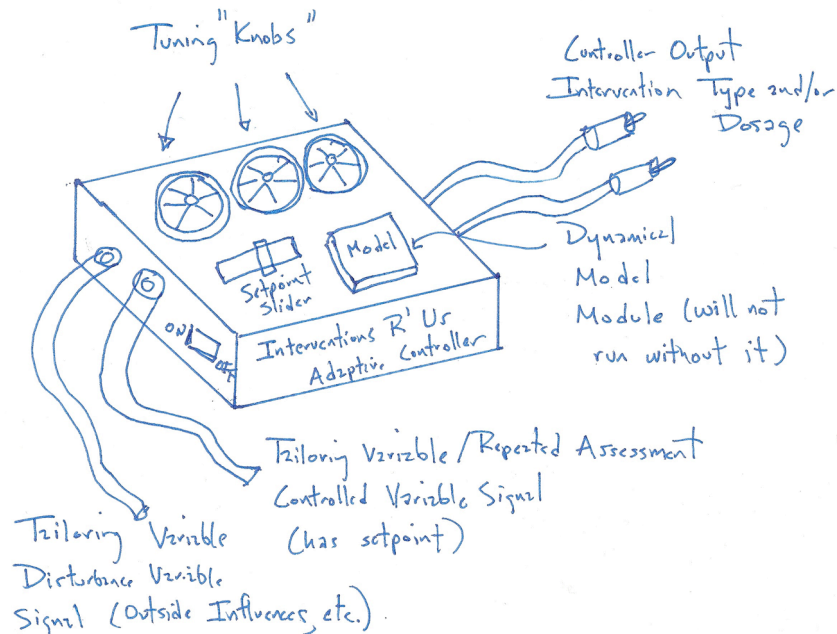 Tuning "Knobs"
Controller Output
Intervention Type and/or
Dosage
Model
Setpoint
Slider
Dynamical
Model
Module (will not
run without it)
ON
OFF
Interventions R' Us
Adaptive Controller
Tailoring Variable/Repeated Assessment
Controlled Variable Signal
(has setpoint)
Tailoring Variable
Disturbance Variable
Signal (Outside Influences, etc.)